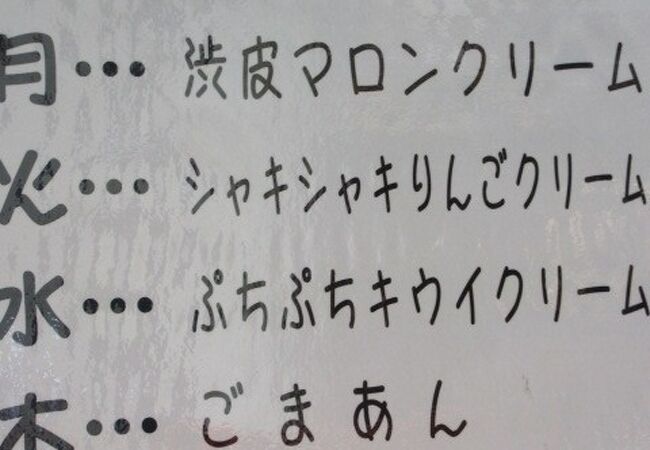 月・・・ 渋皮マロンクリーム
火・・・ シャキシャキりんごクリーム
水・・・ ぷちぷちキウイクリーム
木・・・ ごまあん